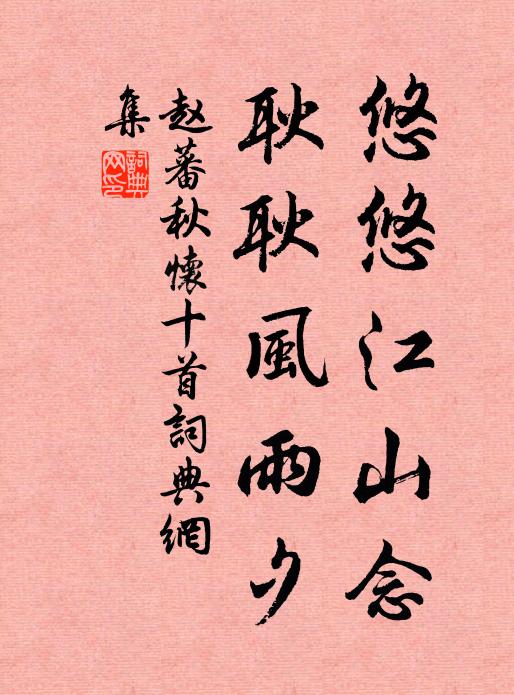 悠悠江山念
耿耿風雨夕
赵蕃秋懷十首詞典網
集
詞典
网印